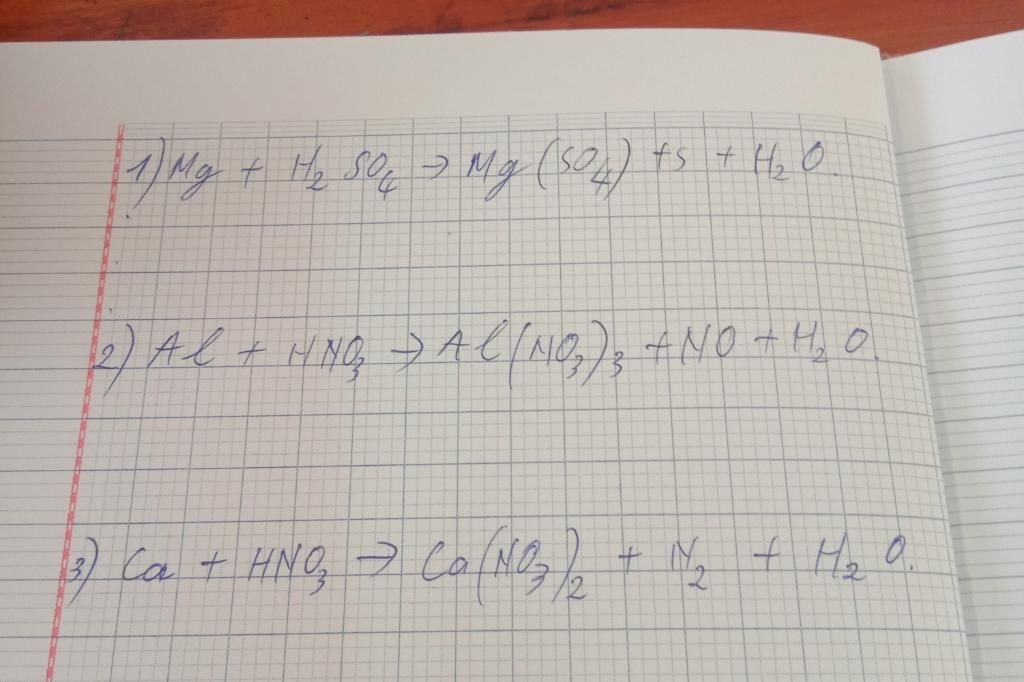 1) Mg + H₂SO₄ → Mg(SO₄) + S + H₂O.
2) Al + HNO₃ → Al(NO₃)₃ + NO + H₂O.
3) Ca + HNO₃ → Ca(NO₃)₂ + N₂ + H₂O.